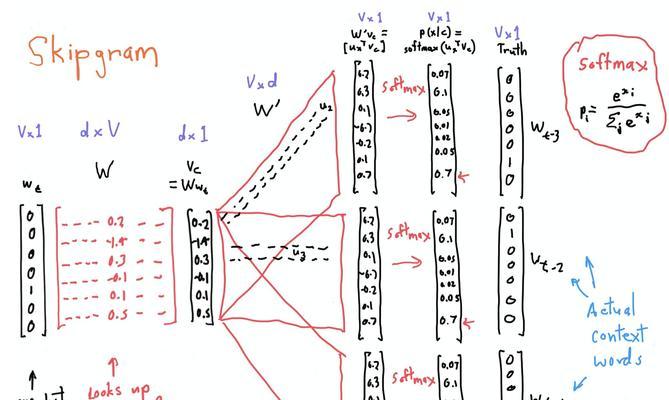 Skipgram
V x 1
d x V
W
w_t
d x 1
v_c
= Ww_t
0
0
0
0
1
0
0
0.2
-1.4
0.3
-0.1
0.1
0.5
0.2
-1.4
0.3
-0.1
0.1
0.5
Looks up
V x d
W'
u_2
u_3
V x 1
W'v_c =
[u_x^T v_c]
V x 1
p(x|c) =
softmax(u_x^T v_c)
V x 1
Truth
6.2
6.3
0.1
-0.2
0.1
0.7
softmax
0.07
0.1
0.05
0.01
0.02
0.05
0.7
0
0
0
0
0
1
0
w_t-3
6.2
6.3
0.1
-0.2
0.1
0.7
softmax
0.07
0.1
0.05
0.01
0.02
0.05
0.7
0
1
0
0
0
0
0
w_t-2
6.2
6.3
softmax
0.07
0.1
0
0
0
softmax
p_i = e^x_i / Σ_j e^x_j
Actual
context
words